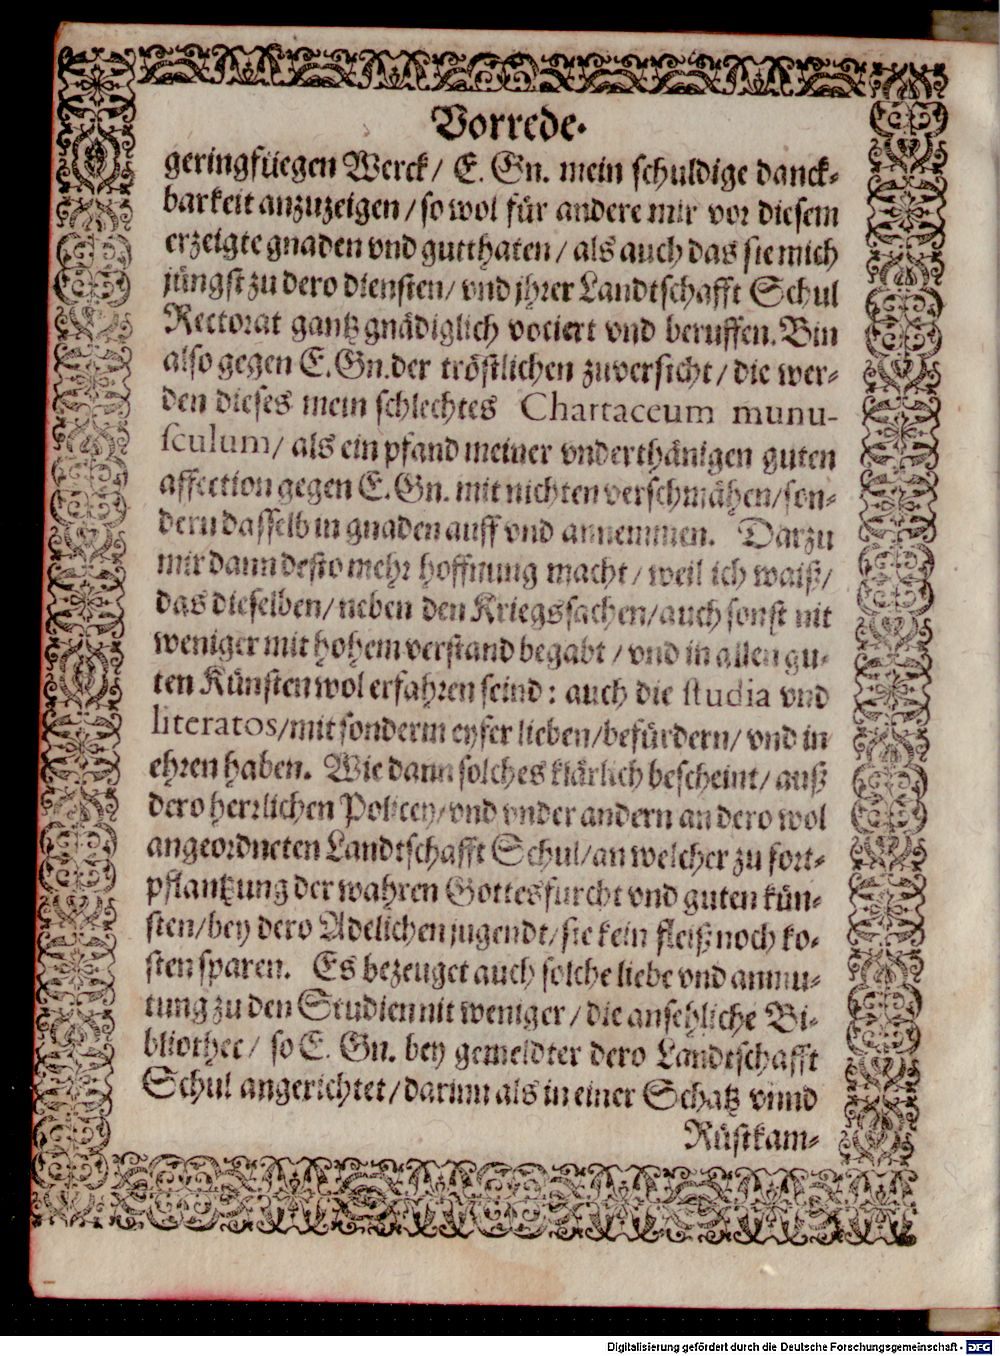 Vorrede.
geringfüegen Werck/ E. Gn. mein schuldige danck-
barkeit anzuzeigen/ so wol für andere mir vor diesem
erzeigte gnaden vnd gutthaten/ als auch das sie mich
jüngst zu dero diensten/ vnd jhrer Landtschafft Schul
Rectorat gantz gnädiglich vociert vnd beruffen. Bin
also gegen E. Gn. der tröstlichen zuversicht/ die wer-
den dieses mein schlechtes Chartaceum munu-
sculum/ als ein pfand meiner vnderthänigen guten
affection gegen E. Gn. mit nichten verschmähen/ son-
dern dasselb in gnaden auff vnd annemmen. Darzu
mir dann desto mehr hoffnung macht/ weil ich waiß/
das dieselben/ neben den Kriegssachen/ auch sonst nit
weniger mit hohem verstand begabt/ vnd in allen gu-
ten Künsten wol erfahren seind: auch die studia vnd
literatos/ mit sonderm eyfer lieben/ befürdern/ vnd in
ehren haben. Wie dann solches klärlich bescheint/ auß
dero herrlichen Policey/ vnd vnder andern an dero wol
angeordneten Landtschafft Schul/ an welcher zu fort-
pflantzung der wahren Gottesfurcht vnd guten kün-
sten/ bey dero Adelichen jugendt/ sie kein fleiß noch ko-
sten sparen. Es bezeuget auch solche liebe vnd anmu-
tung zu den Studien nit weniger/ die ansehliche Bi-
bliothec/ so E. Gn. bey gemeldter dero Landtschafft
Schul angerichtet/ darinn als in einer Schatz vnnd
Rüstkam-
Digitalisierung gefördert durch die Deutsche Forschungsgemeinschaft - DFG